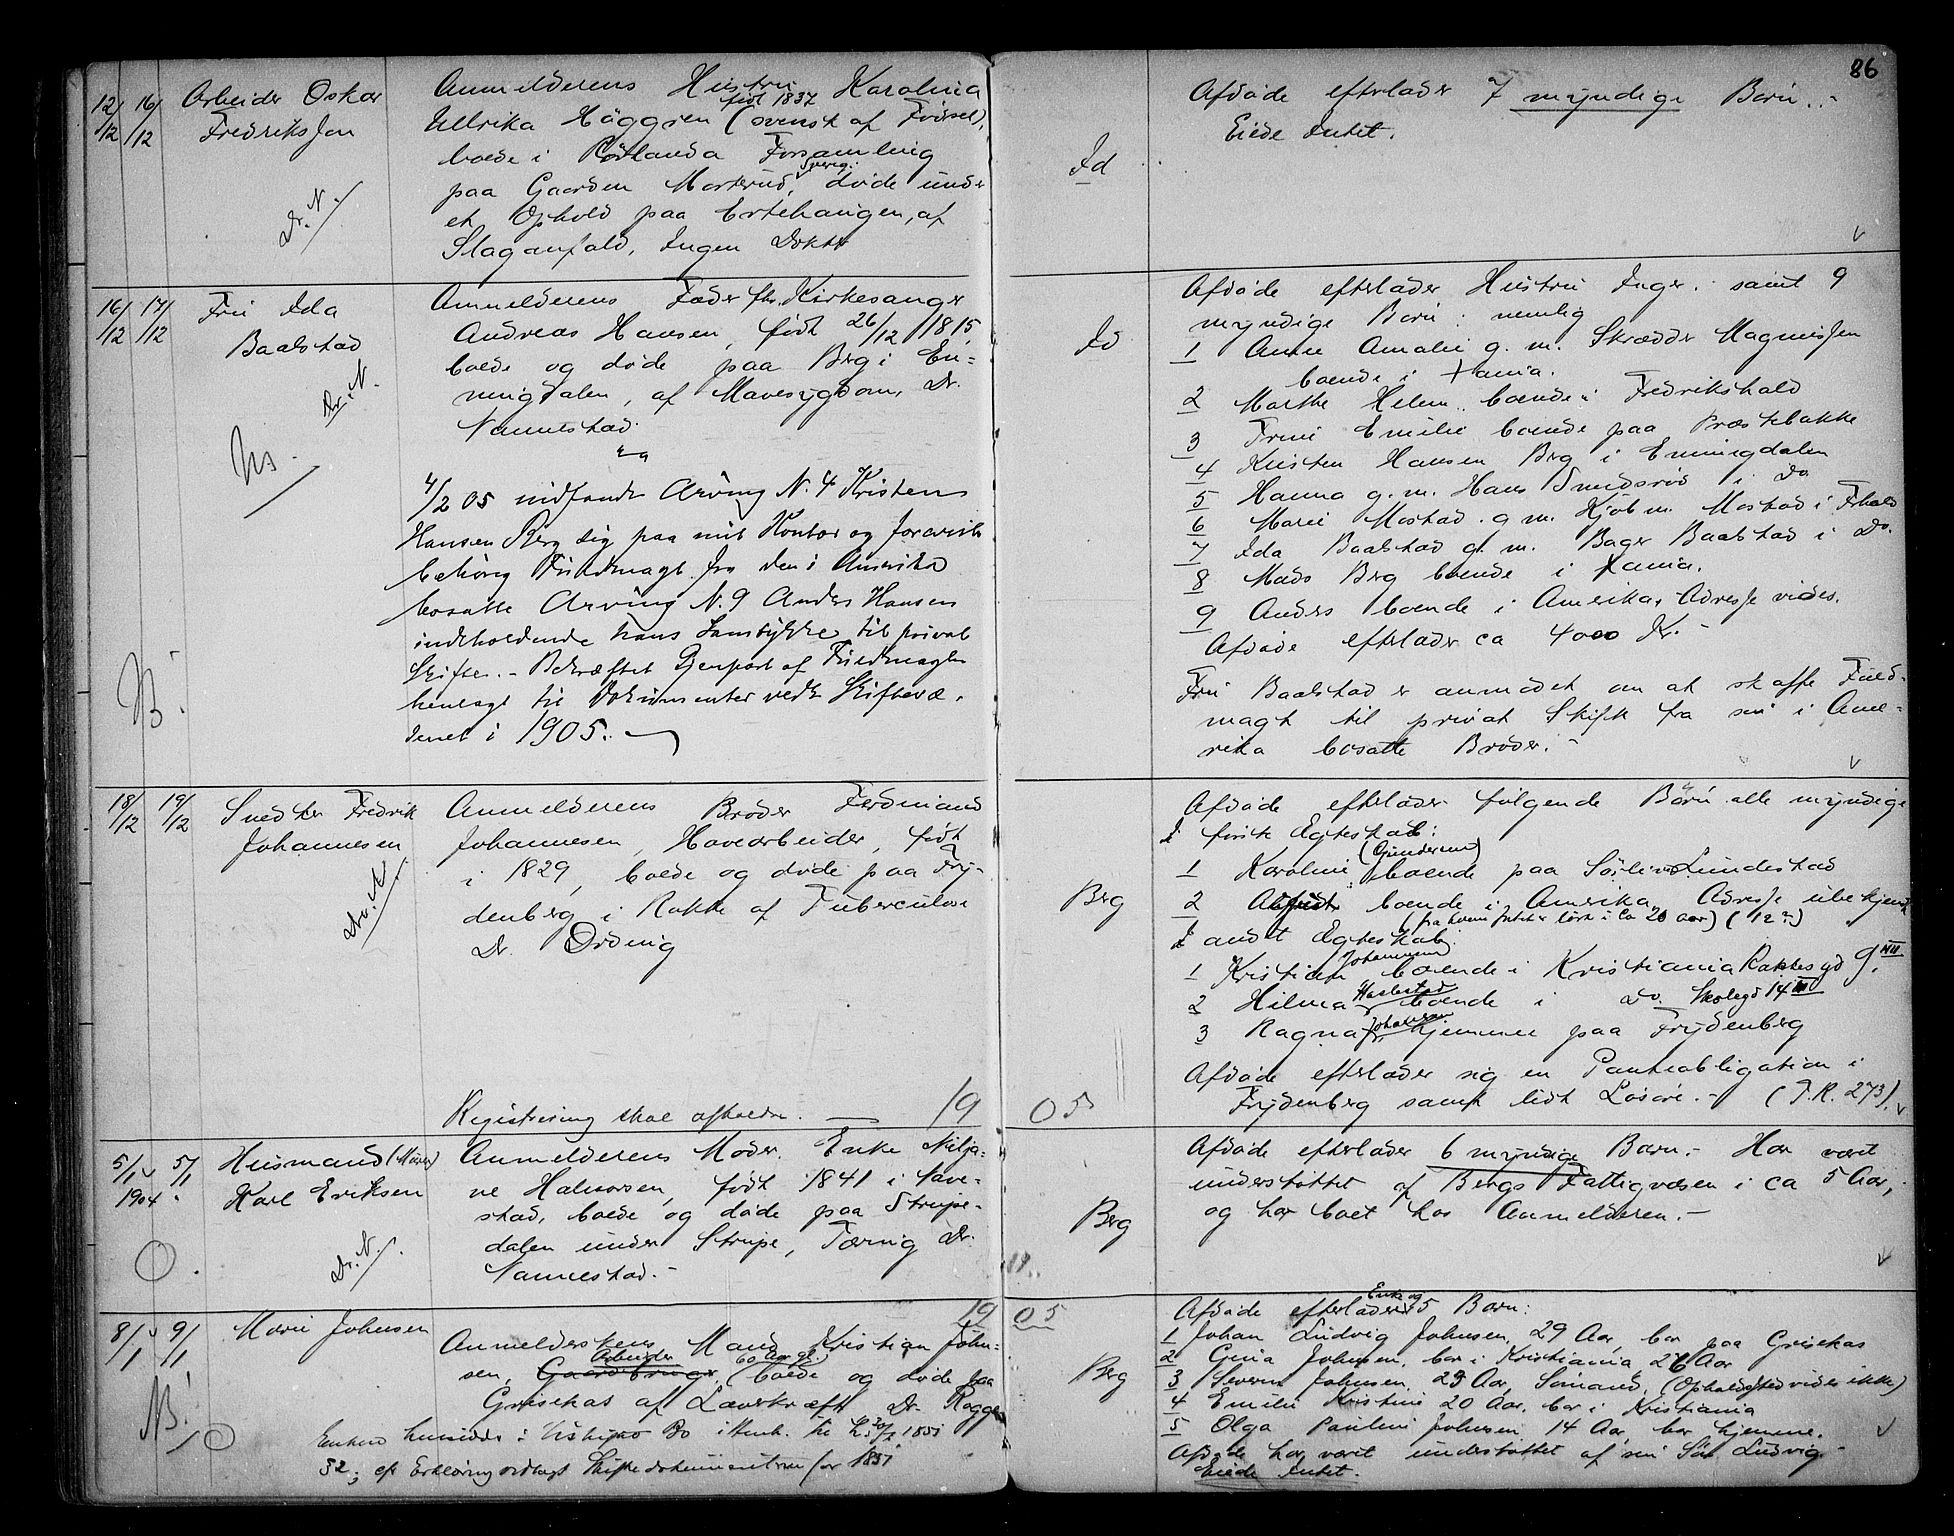 86
12/12 16/12 Arbeider Oskar Fredriksen
Dr. N.
Anmelderens Hustru Karolina
født 1837
Ullrika Häggren (svensk af Fødsel),
boede i Forsamling
Sverig.
paa Gaarden døde under
et Ophold paa Ertehaugen, af
Slaganfald, Ingen Doktor
Id
Afdøde efterlader 7 myndige Børn. -
Eiede Intet.
16/12 17/12 Fru Ida
Baalstad
Dr. N.
Anmelderens Fader fhv. Kirkesanger
Andreas Hansen, født 26/12 1815,
boede og døde paa Berg i En=
ningdalen, af Mavesygdom, Dr.
Nannestad.
4/2 05 indfandt Arving N. 4 Kristen
Hansen Berg sig paa mit Kontor og foreviste
behørig Fuldmagt fra den i Amerika
bosatte Arving N. 9 Anders Hansen
indeholdende hans Samtykke til privat
Skifte. - Bekræftet Gjenpart af Fuldmagten
henlagt til Dokumenter vedk. Skiftevæ-
senet i 1905. -
Id
Afdøde efterlader Hustru Inger. samt 9
myndige Børn: nemlig
1 Anne Amalie g. m. Skrædder Magnussen
boende i Xania.
2 Marthe Helene boende i Fredrikshald
3 Emilie boende paa Præstebakke
4 Kristen Hansen Berg i Enningdalen
5 Hanna g. m. Hans Smedsrød i Do
6 Marie Mostad g. m. Kjøbm. Mostad i Fhald
7 Ida Baalstad g. m. Bager Baalstad i Do.
8 Mads Berg boende i Xania.
9 Anders boende i Amerika, Adresse vides.
Afdøde efterlader ca 4000 Kr. -
Fru Baalstad er anmodet om at skaffe Fuld-
magt til privat Skifte fra sin i Ame-
rika bosatte Broder. -
18/12 19/12 Snedker Fredrik
Johannesen
Dr. N.
Anmelderens Broder Ferdinand
Johannesen, Havearbeider, født
i 1829, boede og døde paa Fry-
denberg i Rokke af Tuberculose
Dr. Ording
Registrering skal afholdes. — 19
05
Berg
Afdøde efterlader følgende Børn alle myndige
I første Egteskab:
(Gundersen)
1 Karoline boende paa Lundestad
2 boende i Amerika, Adresse ubekjendt
(fra hvem intet er hørt i ca 20 aar) (12?)
I andet Egteskab:
Johannesen
1 Kristian boende i Kristiania Rakkesgd 9
2 Hilma boende i Do. Skolegd 14
Johannesen
3 Ragna hjemme paa Frydenberg
Afdøde efterlader sig en Panteobligation i
Frydenberg samt lidt Løsøre. - (P.R. 273).
5/1 5/1
1904
Husmand (Murer)
Karl Eriksen
Dr. N.
Anmelderens Moder, Enke Nilja-
ne Halvorsen, født 1841 i Have-
stad, boede og døde paa Strupe-
dalen under Strupe, Tæring Dr.
Nannestad. -
Berg
Afdøde efterlader 6 myndige Børn. - Har været
understøttet af Bergs Fattigvæsen i ca 5 Aar,
og har boet hos Anmelderen. -
19 05
8/1 9/1 Marie Johnsen
Anmelderskens Mand Kristian John-
Arbeider 60 Aar gl.
sen, Gaardbruger, boede og døde paa
Grisekas af Leverkræft Dr. Rogge
Enken hensidder i Uskiftet Bo
52; cfr Erklæring vedlagt Skiftedokumenterne for 1851
Berg
Enke og
Afdøde efterlader 5 Børn:
1 Johan Ludvig Johnsen, 29 Aar, bor paa Grisekas
2 Gina Johnsen, bor i Kristiania 26 Aar
3 Severin Johnsen, 23 Aar, Sømand, (Opholdssted vides ikke)
4 Emilie Kristine 20 Aar, bor i Kristiania
5 Olga Pauline Johnsen, 14 Aar, bor hjemme.
Afdøde har været understøttet af sin Søn Ludvig.
Eiede Intet.